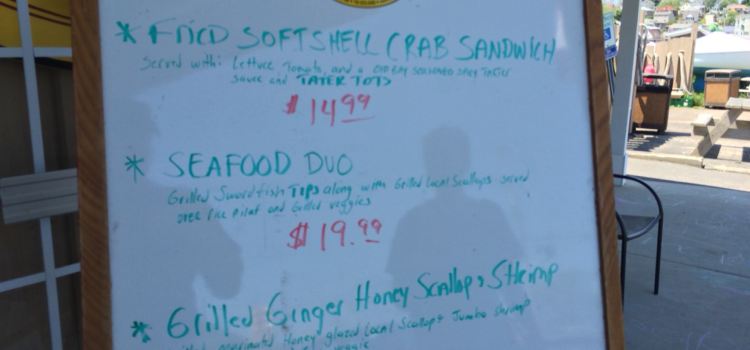 * FRIED SOFTSHELL CRAB SANDWICH
Served with: Lettuce Tomato, and a OLD BAY SEASONED spicy TARTER
sauce and TATER TOTS
$14.99
* SEAFOOD DUO
Grilled Swordfish TIPS along with Grilled Local Scallops served
over rice pilaf and Grilled veggies
$19.99
* Grilled Ginger Honey Scallop & Shrimp
marinated Honey glazed Local Scallops Jumbo shrimp
veggie